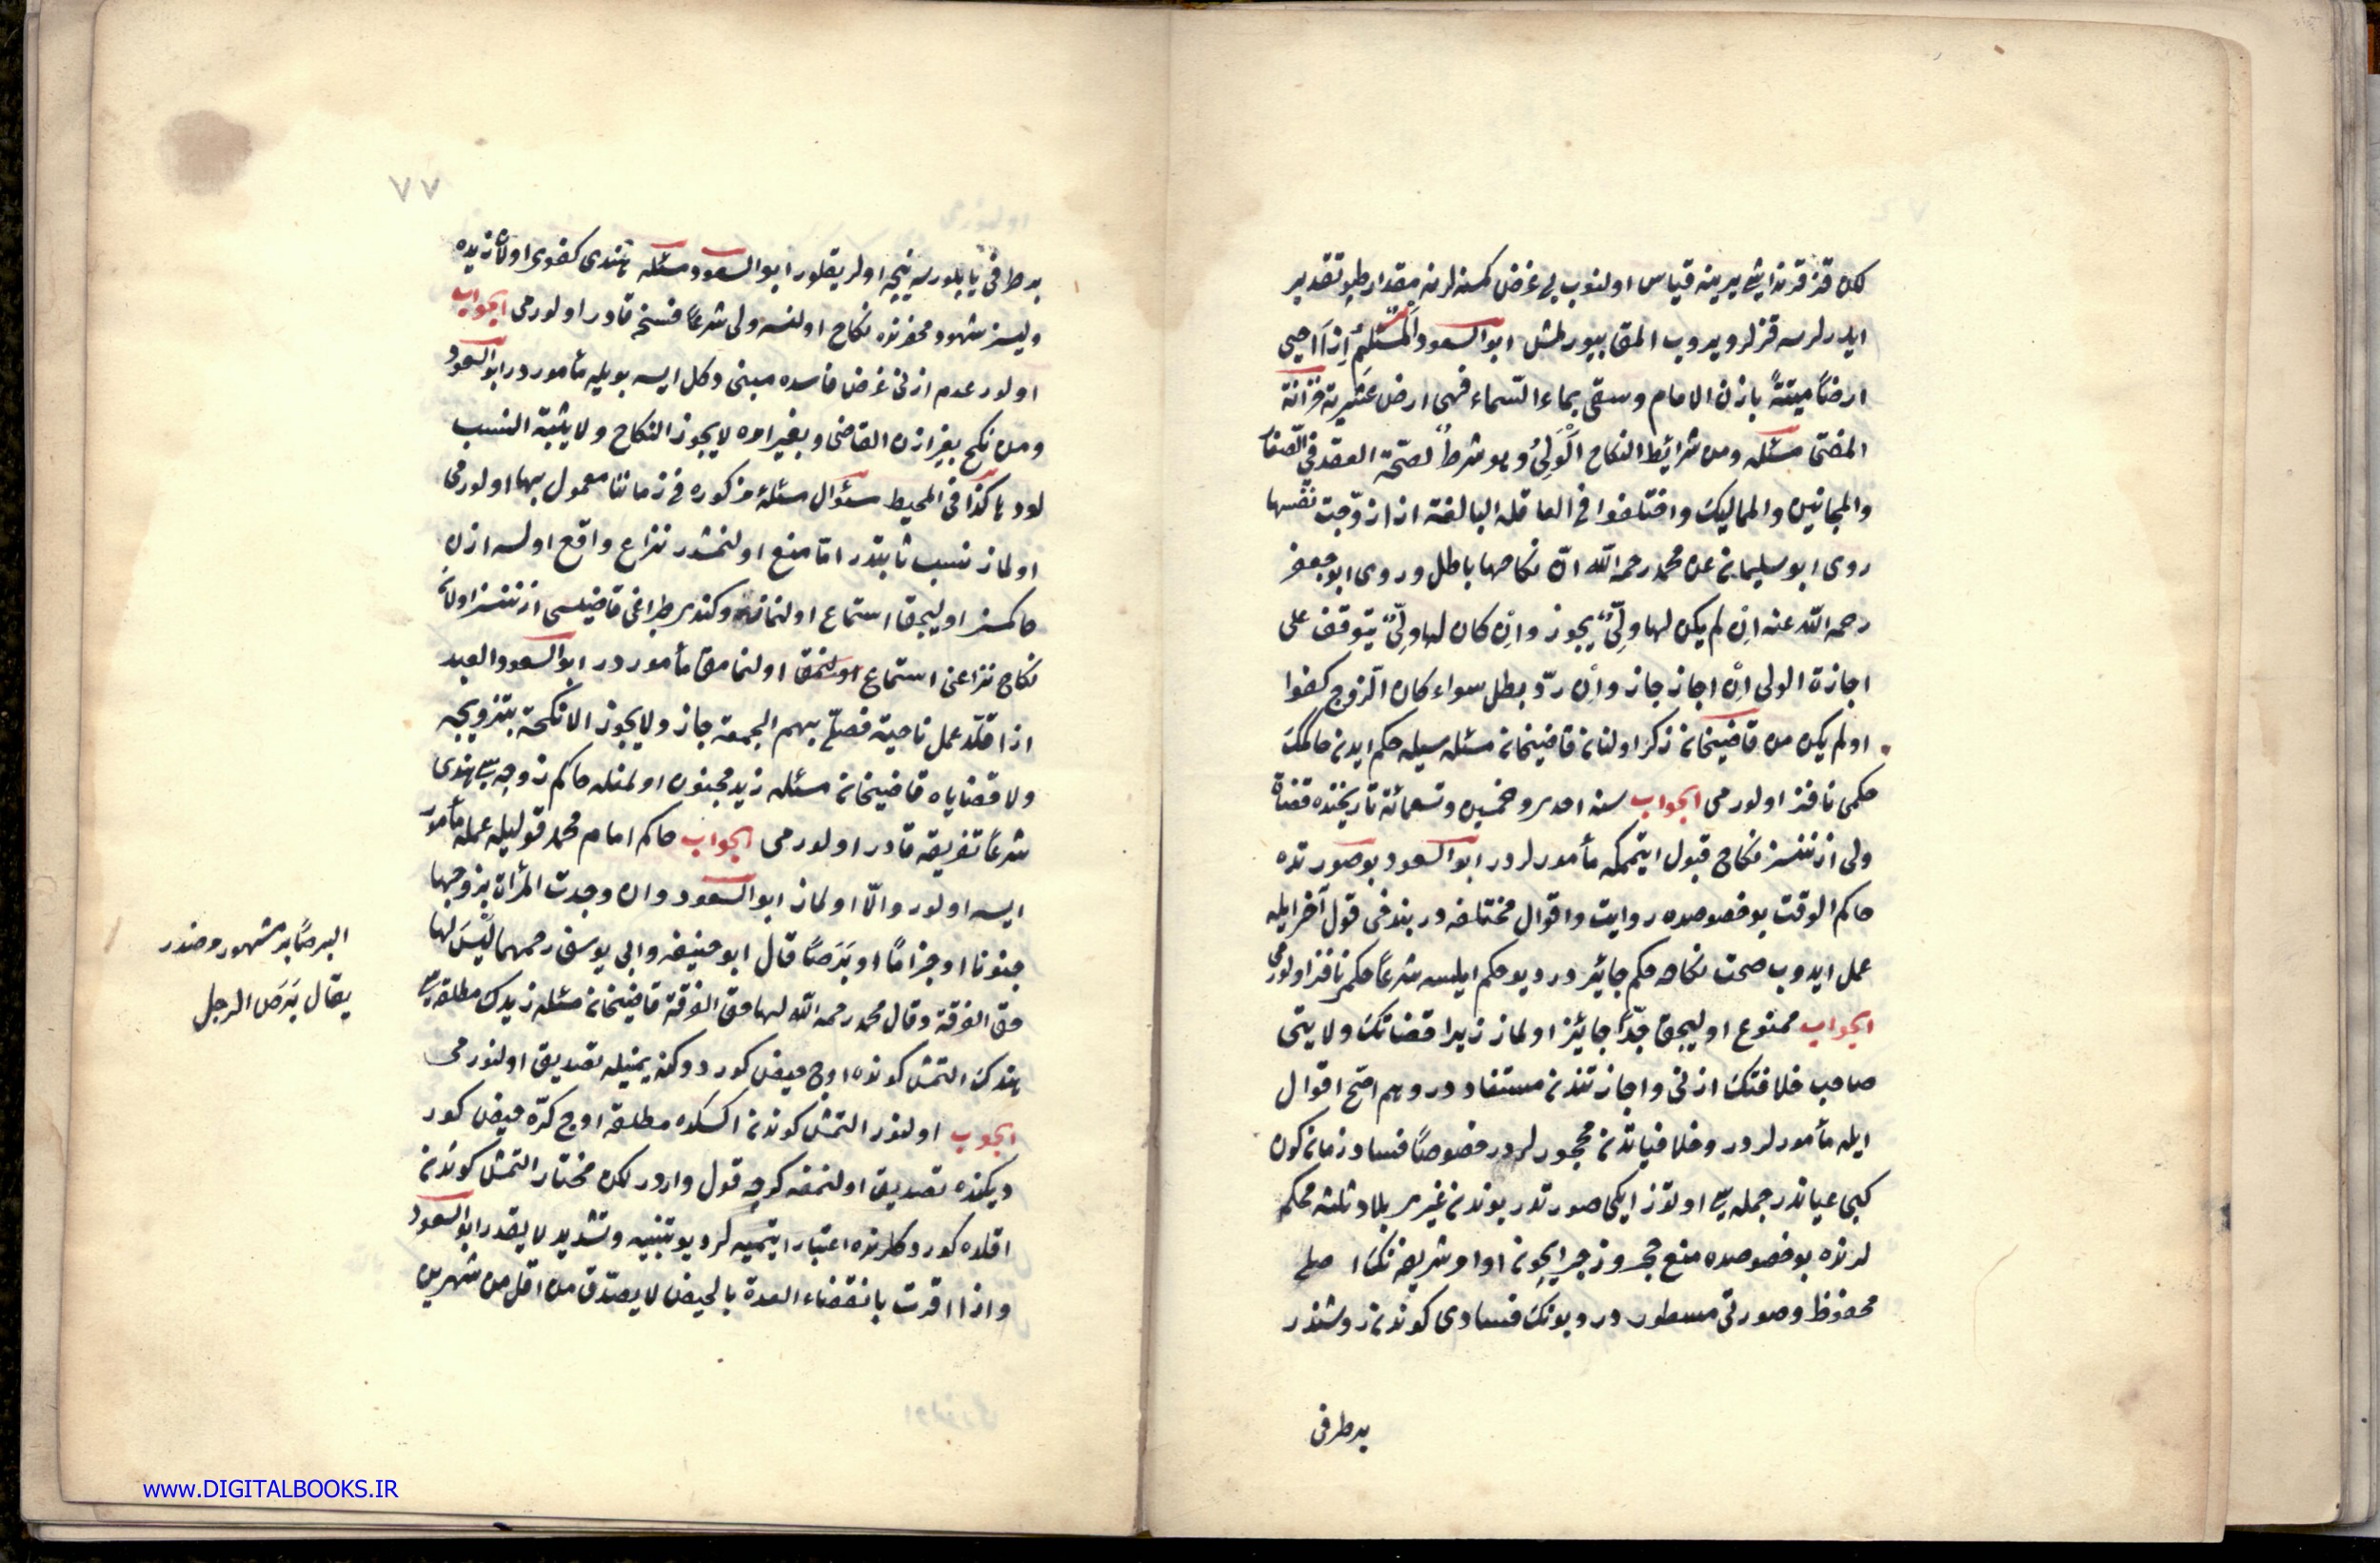 لكن قز قرنداشى يرينه قياس اولنوب بى غرض كمسنه لرنه مقدار طيو تقدير
ايدرلرسه قزلر ويروب المق بيورلمش ابو السعود المسلم اذا احيى
ارضًا ميتةً باذن الامام وسقى بماء السماء فهى ارض عشرية خزانة
المفتى مسئله ومن شرائط النكاح الولىّ وهو شرط لصحة العقد فى الصغار
والمجانين والمماليك واختلفوا فى العاقلة البالغة اذا زوّجت نفسها
روى ابو سليمان عن محمد رحمه الله انّ نكاحها باطل وروى ابو جعفر
رحمه الله عنه ان لم يكن لها ولىّ يجوز وان كان لها ولىّ يتوقف على
اجازة الولى ان اجاز جاز وان ردّ بطل سواء كان الزوج كفوا
اولم يكن من قاضيخان ذكر اولنان قاضيخان مسئله سيله حكم ايدن حاكمك
حكمى نافذ اولورمى الجواب سنه احدى وخمسين وتسعمائة تاريخنده قضاة
ولى اذننسز نكاح قبول ايتممكه مأمورلردر ابو السعود بو صورتده
حاكم الوقت بو خصوصده روايت واقوال مختلفه در بندخى قول آخر ايله
عمل ايدوب صحت نكاحه حكم جائزدر ديو حكم ايلسه شرعًا حكم نافذ اولورمى
الجواب ممنوع اوليجق جدّا جائز اولماز زيرا قضاتك ولايتى
صاحب خلافتك اذنى واجازتندن مستفاددر وهم اصح اقوال
ايله مأمورلردر وخلافياتدن محجورلردر خصوصًا فساد زمان كون
كبى عياندر جمله سى اولنور ايكى صورتدر بوندن غيرى بلاد ثلثه محكمه
لرنده بو خصوصده منع حجر وزجر ايچون اوامر شريفه نك اصلى
محفوظ وصورتى مسطور در وبونك فسادى كوندن روشندر
بر طرفى
٧٧
بر طرفى يا بلورسه نيجه اولر يقلور ابو السعود مسئله هندى كفوى اولان زيده
وليسز شهود محضرنده نكاح اولنسه ولى شرعًا فسخه قادر اولورمى الجواب
اولور عدم اذنى غرض فاسده مبنى دكل ايسه بويله مأموردر ابو السعود
ومن نكح بغير اذن القاضى وبغير امره لا يجوز النكاح ولا يثبت النسب
لود هاكذا فى المحيط سئوال مسئلۀ مزكوره فى زماننا معمول بها اولورمى
اولماز نسب ثابتدر امّا منع اولنمشدر نزاع واقع اولسه اذن
حاكمسز اوليجق استماع اولنماز وكندى طپراغى قاضيسى اذننسز اولان
نكاح نزاعن استماع اولنمق اولنمامق مأموردر ابو السعود العبد
اذا قلّد عمل ناحية فصلّى بهم الجمعه جاز ولا يجوز الانكحة بتزويجه
ولا قضاياه قاضيخان مسئله زيد مجنون اولمغله حاكم زوجه سى هندى
شرعًا تفريقه قادر اولورمى الجواب حاكم امام محمد قوليله عمله مأمور
ايسه اولور والّا اولماز ابو السعود وان وجدت المرأة بزوجها
جنونا او جذامًا او بَرَصًا قال ابو حنيفه وابى يوسف رحمهما ليْسَ لها
حق الفرقة وقال محمد رحمه الله لها حق الفرقة قاضيخان مسئله زيدك مطلقه سى
هندك التمش كونده اوچ حيض كوردوكنه يمينيله تصديق اولنورمى
الجوب اولنور التمش كوندن اكسكده مطلقه اوچ كرّه حيض كور
ديكنده تصديق اولنمغه كوچه قول واردر لكن مختار التمش كوندن
اقلده كوردكلرنده اعتبار ايتميه لر ديو تنبيه وتشديد لايقدر ابو السعود
واذا اقرت بانقضاء العدة بالحيض لا يصدّق من اقل من شهرين
البرص بر مشهور مرضدر
يقال بَرَص الرجل
www.DIGITALBOOKS.IR